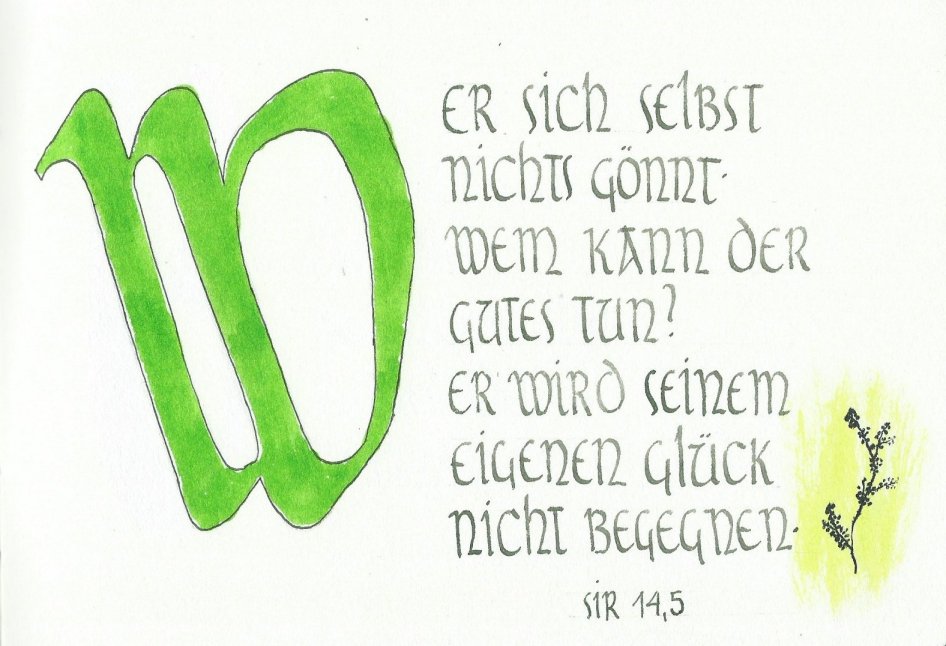 WER SICH SELBST
NICHTS GÖNNT·
WEM KANN DER
GUTES TUN?
ER WIRD SEINEM
EIGENEN GLÜCK
NICHT BEGEGNEN·
SIR 14,5